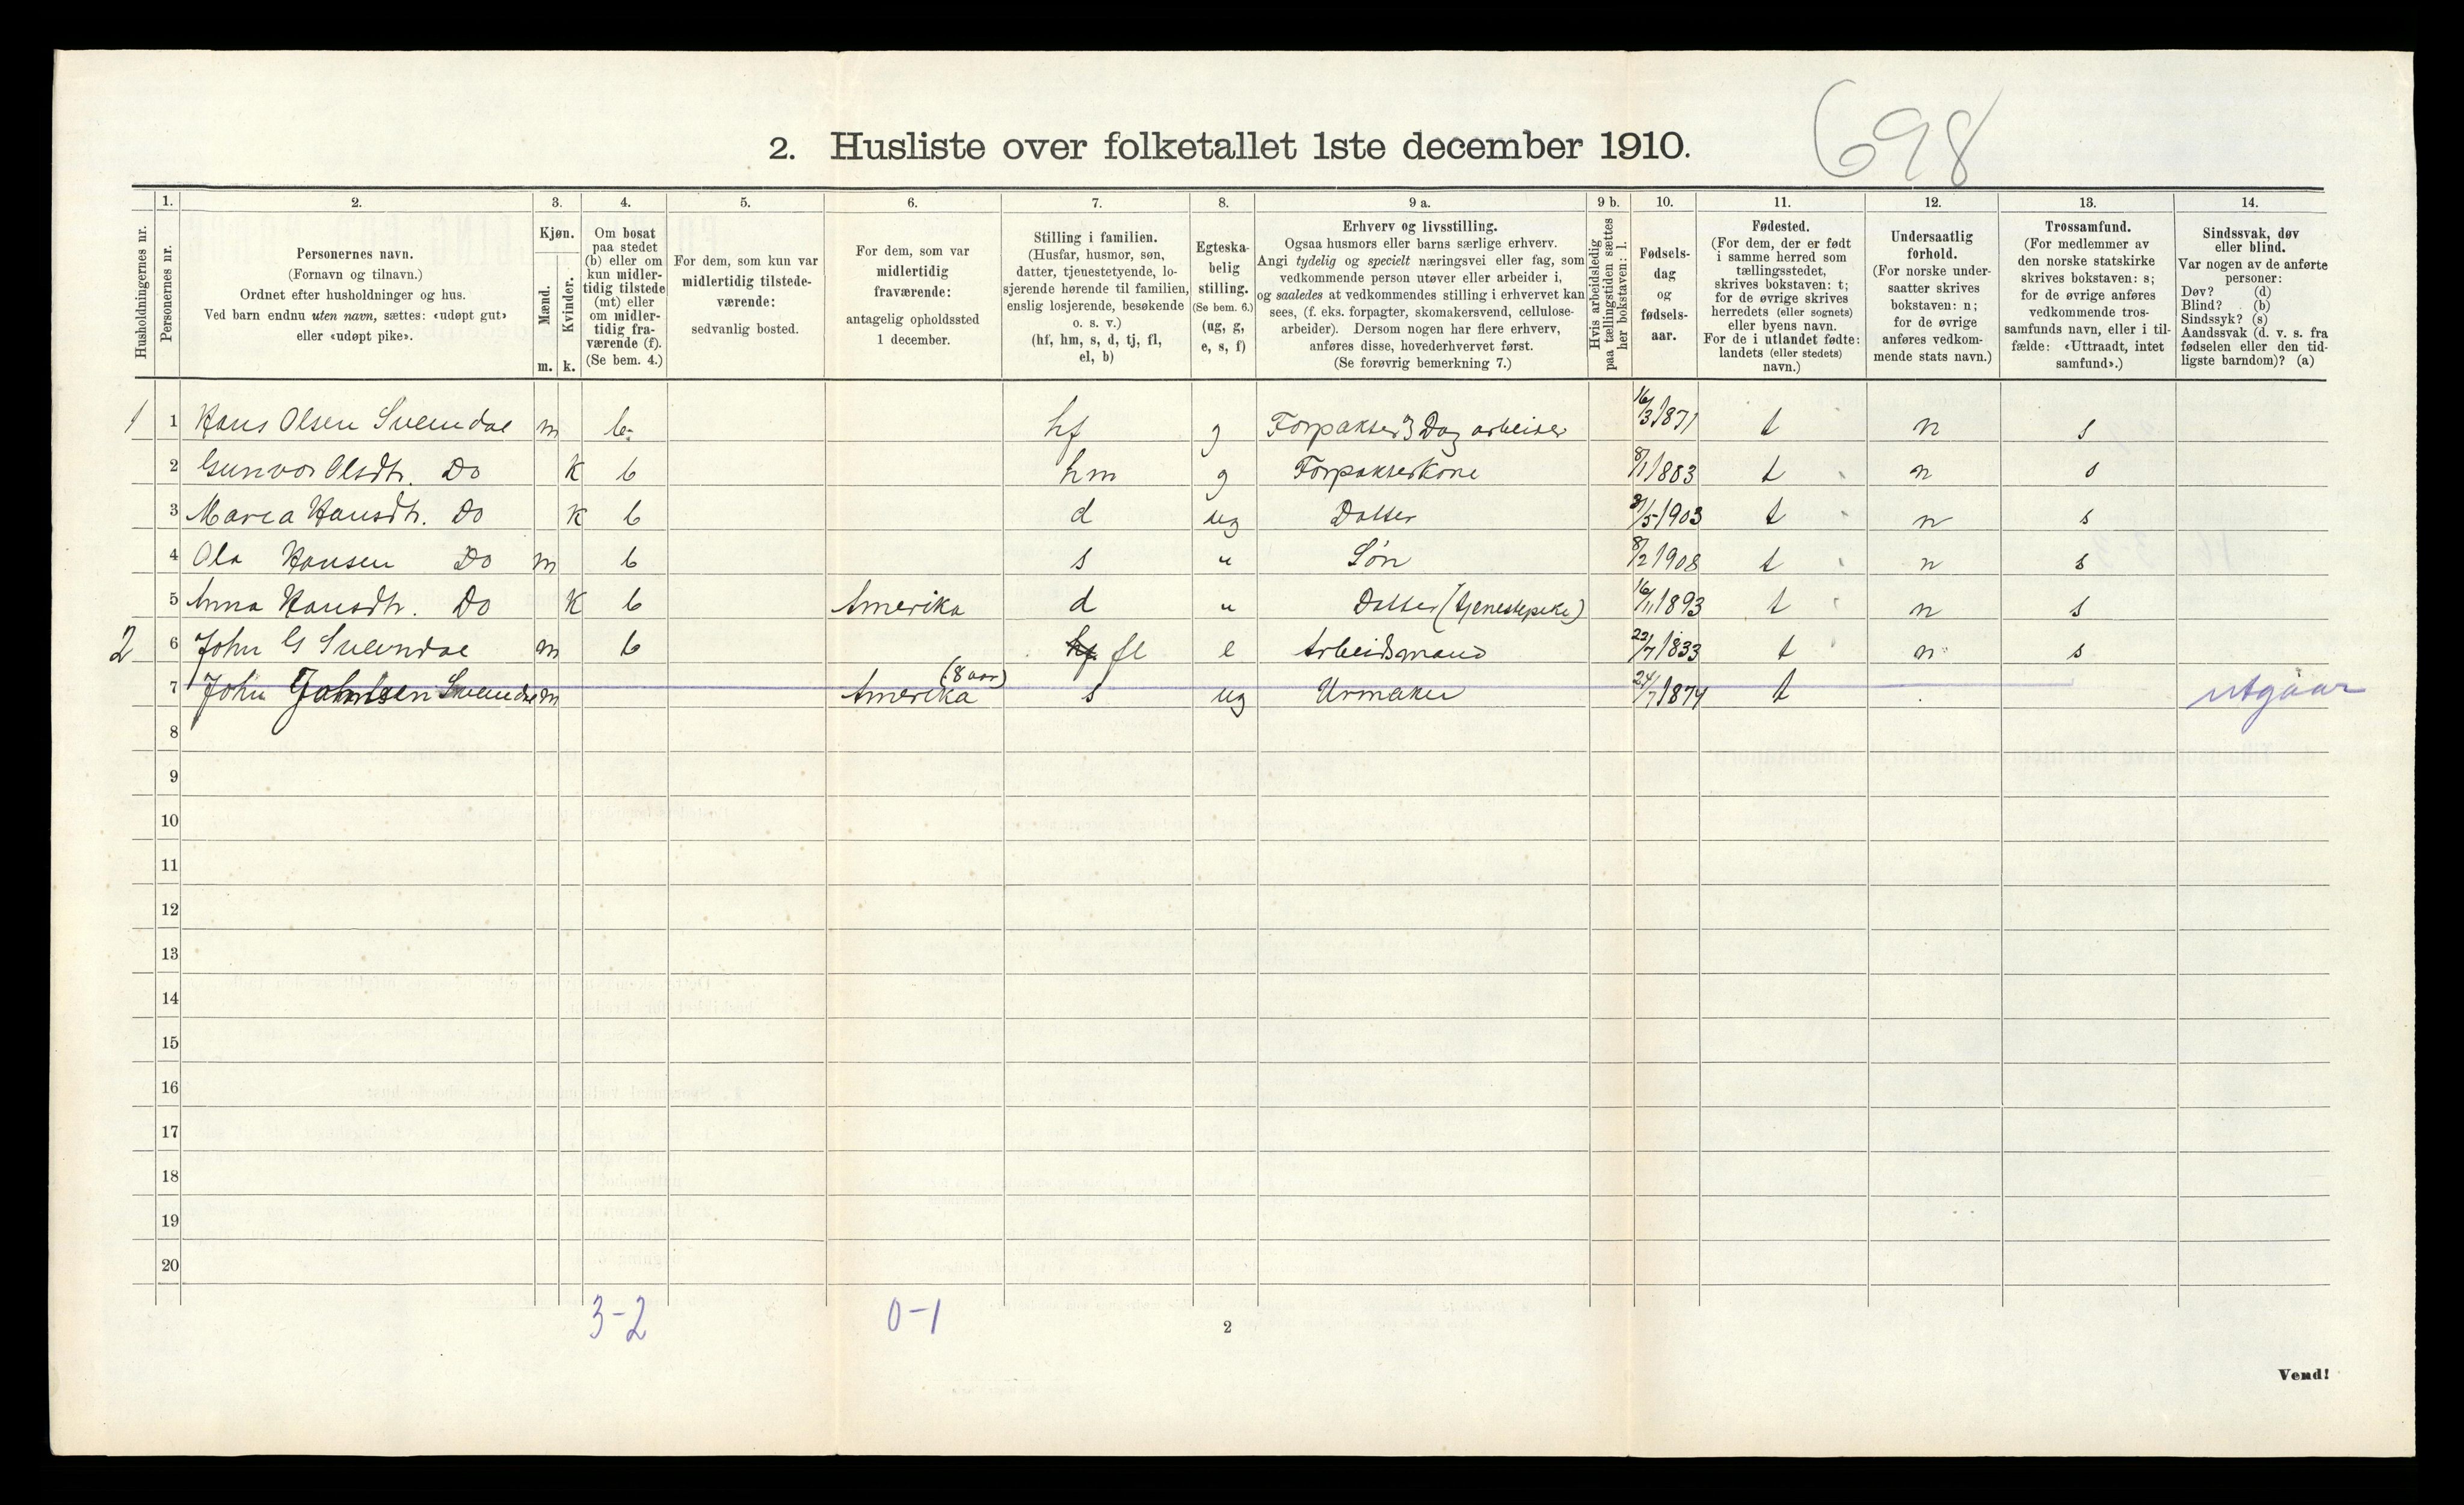 698
2. Husliste over folketallet 1ste december 1910.
Husholdningernes nr.
Personernes nr.
1. 2. 3. 4. 5. 6. 7. 8. 9 a. 9 b. 10. 11. 12. 13. 14.
Personernes navn.
(Fornavn og tilnavn.)
Ordnet efter husholdninger og hus.
Ved barn endnu uten navn, sættes: «udøpt gut»
eller «udøpt pike».
Kjøn.
Mænd.
Kvinder.
m. k.
Om bosat
paa stedet
(b) eller om
kun midler-
tidig tilstede
(mt) eller
om midler-
tidig fra-
værende (f).
(Se bem. 4.)
For dem, som kun var
midlertidig tilstede-
værende:
sedvanlig bosted.
For dem, som var
midlertidig
fraværende:
antagelig opholdssted
1 december.
Stilling i familien.
(Husfar, husmor, søn,
datter, tjenestetyende, lo-
sjerende hørende til familien,
enslig losjerende, besøkende
o. s. v.)
(hf, hm, s, d, tj, fl,
el, b)
Egteska-
belig
stilling.
(Se bem. 6.)
(ug, g,
e, s, f)
Erhverv og livsstilling.
Ogsaa husmors eller barns særlige erhverv.
Angi tydelig og specielt næringsvei eller fag, som
vedkommende person utøver eller arbeider i,
og saaledes at vedkommendes stilling i erhvervet kan
sees, (f. eks. forpagter, skomakersvend, cellulose-
arbeider). Dersom nogen har flere erhverv,
anføres disse, hovederhvervet først.
(Se forøvrig bemerkning 7.)
Hvis arbeidsledig
paa tællingstiden sættes
her bokstaven: l.
Fødsels-
dag
og
fødsels-
aar.
Fødested.
(For dem, der er født
i samme herred som
tællingsstedet,
skrives bokstaven: t;
for de øvrige skrives
herredets (eller sognets)
eller byens navn.
For de i utlandet fødte:
landets (eller stedets)
navn.)
Undersaatlig
forhold.
(For norske under-
saatter skrives
bokstaven: n;
for de øvrige
anføres vedkom-
mende stats navn.)
Trossamfund.
(For medlemmer av
den norske statskirke
skrives bokstaven: s;
for de øvrige anføres
vedkommende tros-
samfunds navn, eller i til-
fælde: «Uttraadt, intet
samfund».)
Sindssvak, døv
eller blind.
Var nogen av de anførte
personer:
Døv? (d)
Blind? (b)
Sindssyk? (s)
Aandssvak (d. v. s. fra
fødselen eller den tid-
ligste barndom)? (a)
1 1 Hans Olsen Sveindal m b hf g Forpakter & Dagarbeider 16/3 1871 t n s
2 Gunvor Olsdtr. Do k b hm g Forpakterkone 8/1 1883 t n s
3 Maria Hansdtr. Do k b d ug Datter /5 1903 t n s
4 Ola Hansen Do m b s " Søn 8/2 1908 t n s
5 Anna Hansdtr. Do k b Amerika d " Datter (tjenestepike) 16/11 1893 t n s
2 6 John G Sveindal m b hf fl e Arbeidsmand 22/7 1833 t n s
7 John Johnsen Sveindal m Amerika (8 aar) s ug Urmaker 24/7 1874 t utgaar
8
9
10
11
12
13
14
15
16
17
18
19
20
3-2 0-1
2
Vend!